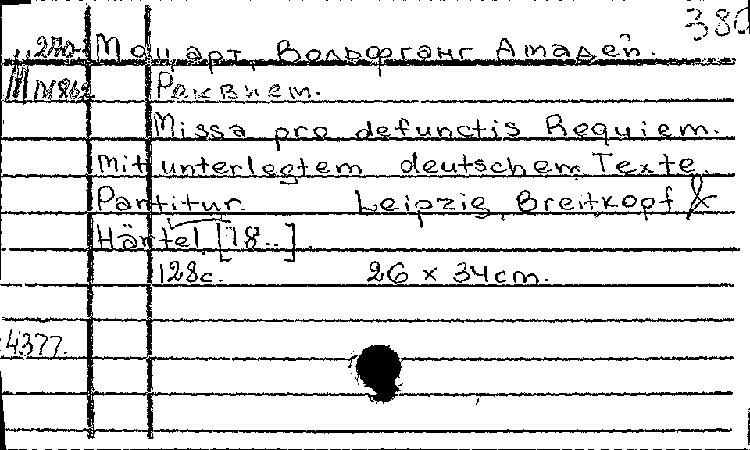 380
270- Моцарт, Вольфганг Амадей.
М М862 Реквием.
Missa pro defunctis Requiem.
Mit unterlegtem deutschem Texte.
Partitur. Leipzig, Breitkopf &
Härtel, [18..].
128с. 26 x 34cm.
4377.